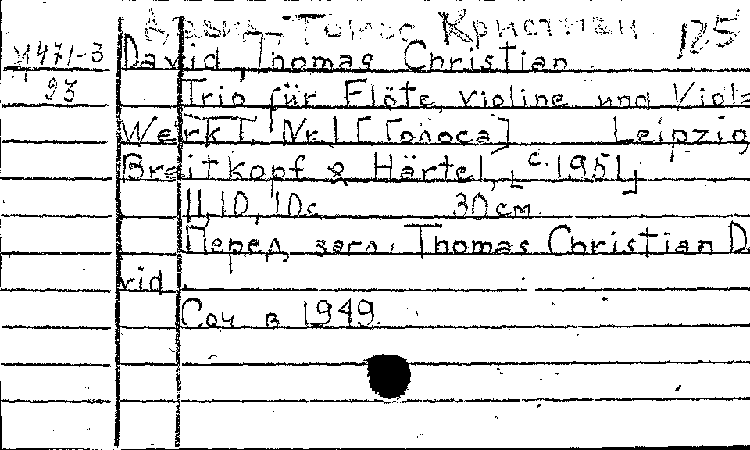 Давид, Томас Кристиан 125
М 471-3 David, Thomas Christian
93 Trio für Flöte, violine und Viola
Werk I, Nr. 1 [Голоса] Leipzig,
Breitkopf & Härtel, [c. 1951]
11, 10, 10с. 30 см.
Перед загл.: Thomas Christian Da
vid.
Соч. в 1949.